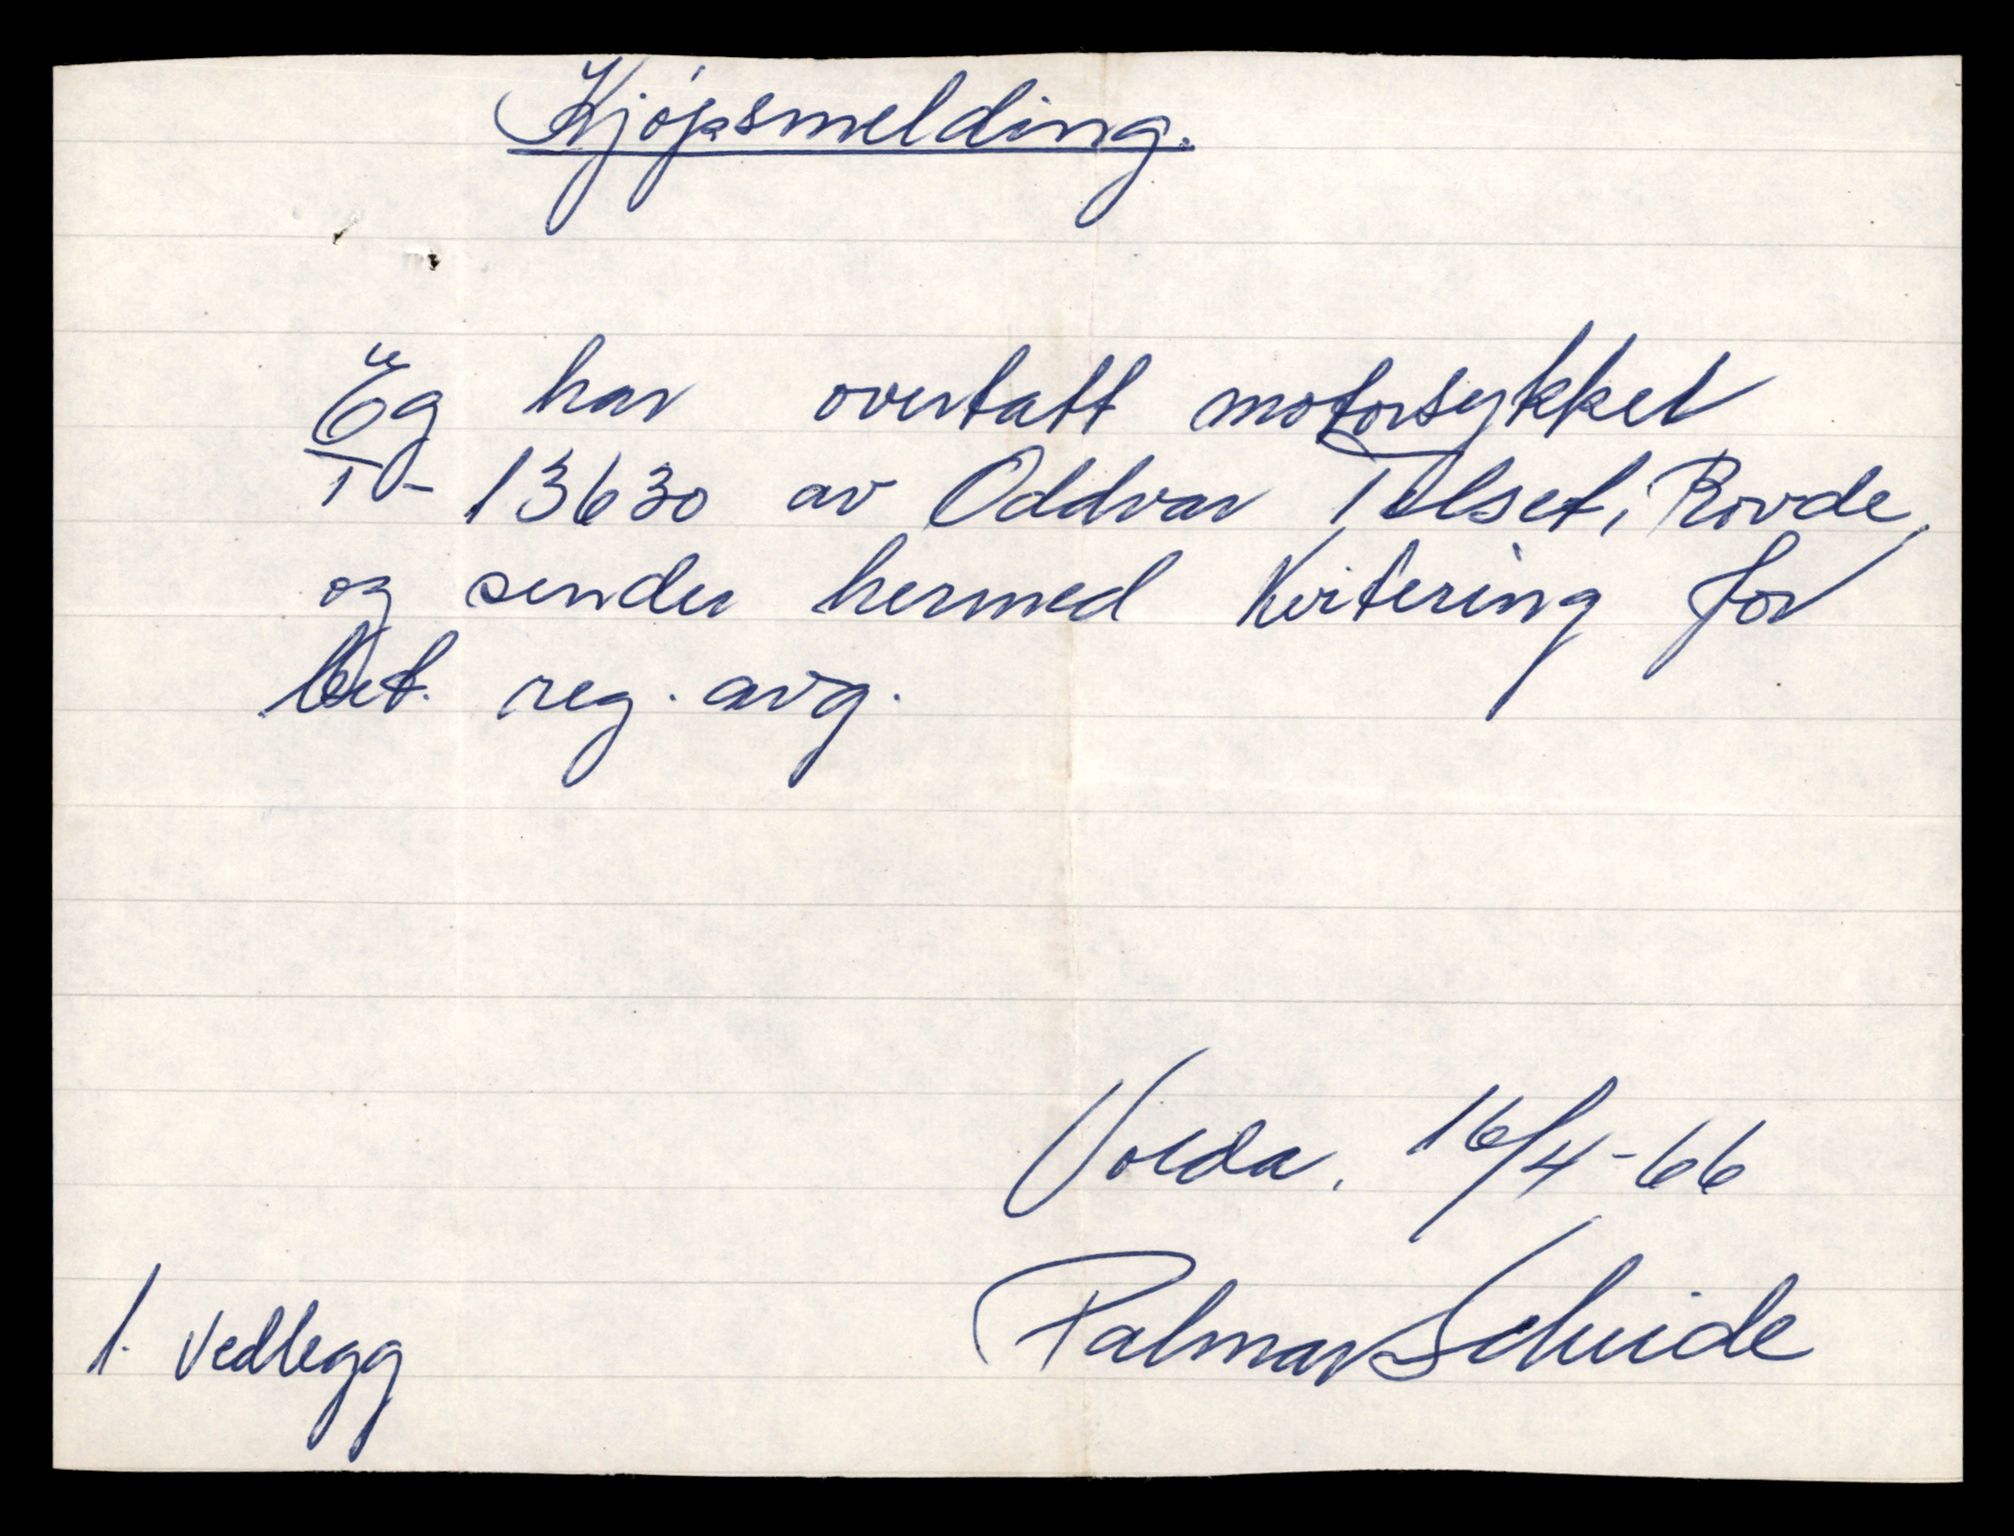 Kjøpsmelding.
Eg har overtatt motorsykkel
T - 13630 av Oddvar Tolset, Rovde,
og sender hermed Kvitering for
bet. reg. avg.
Volda, 16/4-66
Palmar Scheide
1. Vedlegg